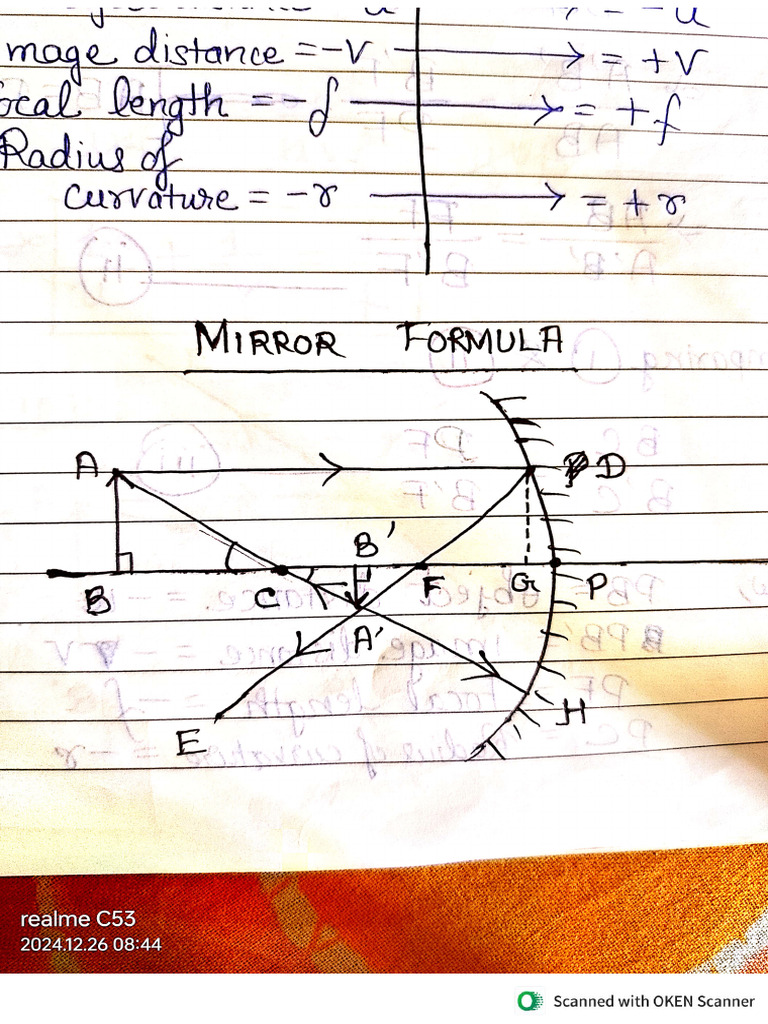 mage distance = -v → = +v
ocal length = -f → = +f
Radius of
curvature = -r → = +r
MIRROR FORMULA
A D
B'
B C F G P
A'
H
E
realme C53
2024.12.26 08:44
Scanned with OKEN Scanner